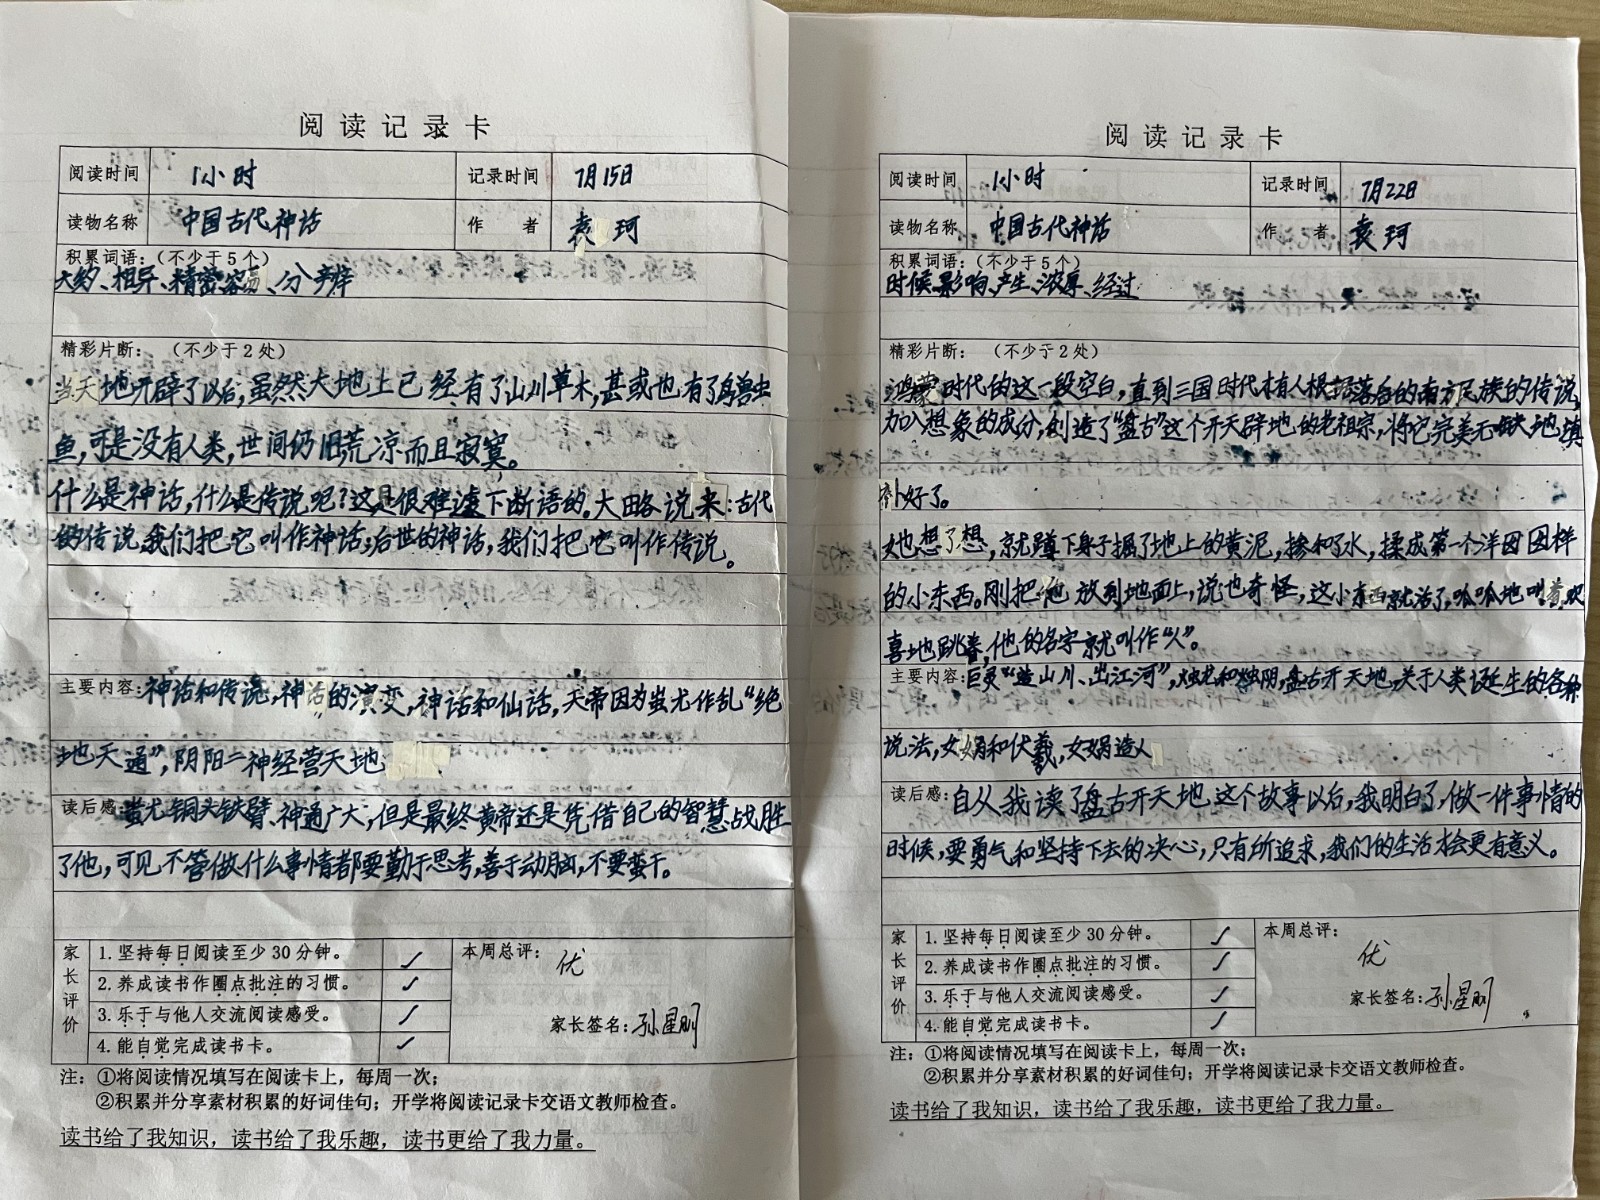 阅读记录卡
阅读时间 1小时 记录时间 7月15日
读物名称 中国古代神话 作者 袁珂
积累词语：（不少于5个）
大约、相异、精密、容易、分辨
精彩片断：（不少于2处）
当天地开辟了以后，虽然大地上已经有了山川草木，甚或也有了鸟兽虫
鱼，可是没有人类，世间仍旧荒凉而且寂寞。
什么是神话，什么是传说呢？这是很难遽下断语的。大略说来：古代
的传说，我们把它叫作神话；后世的神话，我们把它叫作传说。
主要内容：神话和传说，神话的演变，神话和仙话，天帝因为蚩尤作乱“绝
地天通”，阴阳二神经营天地
读后感：蚩尤铜头铁臂、神通广大，但是最终黄帝还是凭借自己的智慧战胜
了他，可见不管做什么事情都要勤于思考，善于动脑，不要蛮干。
家长评价
1.坚持每日阅读至少30分钟。 ✓
2.养成读书作圈点批注的习惯。 ✓
3.乐于与他人交流阅读感受。 ✓
4.能自觉完成读书卡。 ✓
本周总评：
优
家长签名：孙星明
注：①将阅读情况填写在阅读卡上，每周一次；
②积累并分享素材积累的好词佳句；开学将阅读记录卡交语文教师检查。
读书给了我知识，读书给了我乐趣，读书更给了我力量。
阅读记录卡
阅读时间 1小时 记录时间 7月22日
读物名称 中国古代神话 作者 袁珂
积累词语：（不少于5个）
时候、影响、产生、浓厚、经过
精彩片断：（不少于2处）
鸿蒙时代的这一段空白，直到三国时代才有人根据落后的南方民族的传说，
加入想象的成分，创造了“盘古”这个开天辟地的老祖宗，将它完美无缺地填
补好了。
她想了想，就蹲下身子掘了地上的黄泥，掺和了水，揉成第一个洋囡囡样
的小东西。刚把他放到地面上，说也奇怪，这小东西就活了，呱呱地叫着，欢
喜地跳着，他的名字就叫作“人”。
主要内容：巨灵“造山川、出江河”，烛龙和烛阴，盘古开天地，关于人类诞生的各种
说法，女娲和伏羲，女娲造人
读后感：自从我读了盘古开天地这个故事以后，我明白了，做一件事情的
时候，要勇气和坚持下去的决心，只有所追求，我们的生活才会更有意义。
家长评价
1.坚持每日阅读至少30分钟。 ✓
2.养成读书作圈点批注的习惯。 ✓
3.乐于与他人交流阅读感受。 ✓
4.能自觉完成读书卡。 ✓
本周总评：
优
家长签名：孙星明
注：①将阅读情况填写在阅读卡上，每周一次；
②积累并分享素材积累的好词佳句；开学将阅读记录卡交语文教师检查。
读书给了我知识，读书给了我乐趣，读书更给了我力量。